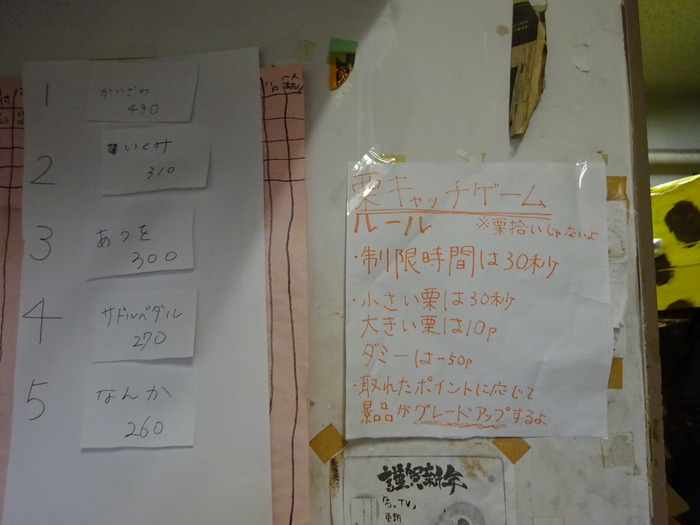 1
かいざわ
490
2
いくみ
310
3
あつを
300
4
サドルペダル
270
5
なんか
260
栗キャッチゲーム
ルール
※栗拾いじゃないよ
・制限時間は30秒
・小さい栗は30秒
大きい栗は10p
ダミーは-50p
・取れたポイントに応じて
景品がグレードアップするよ
謹賀新年